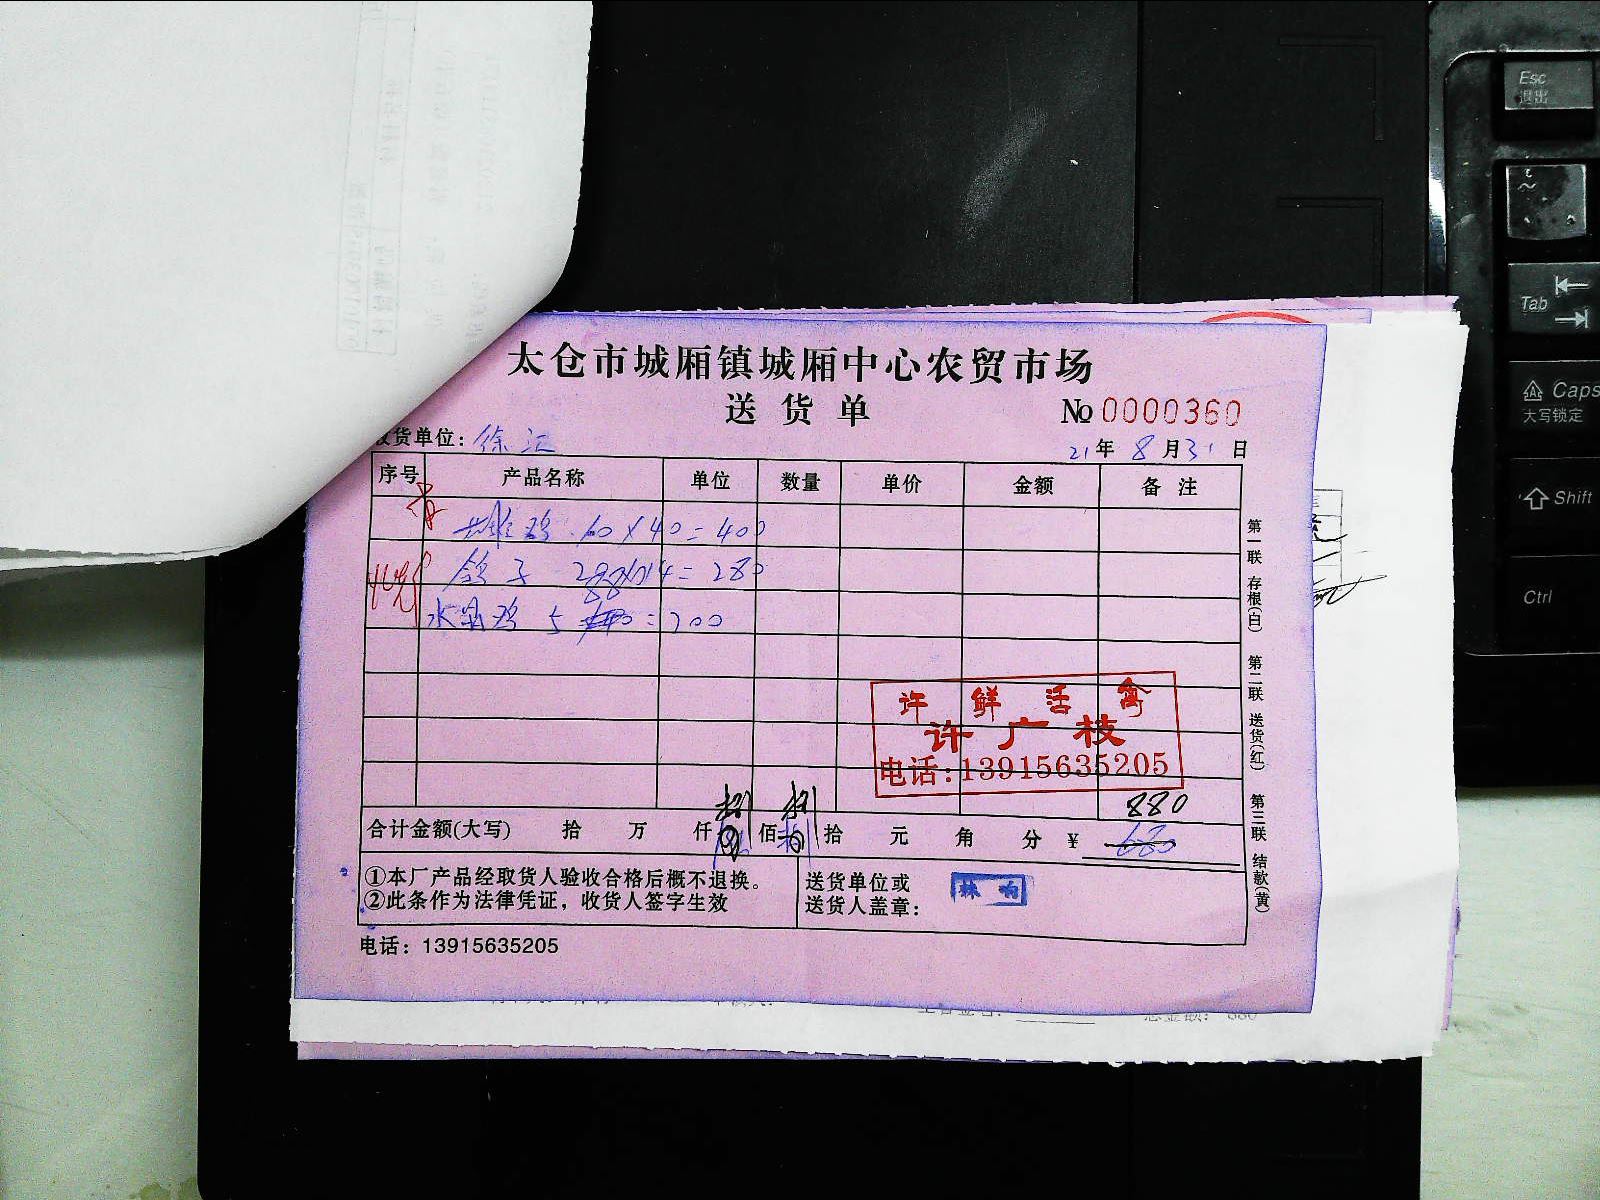 太仓市城厢镇城厢中心农贸市场
送货单
No 0000360
收货单位: 徐汇
21年 8月31日
序号 产品名称 单位 数量 单价 金额 备注
鸡 10×40=400
鸽子 =280
水 鸡 5 =200
许鲜活禽
许广枝
电话:13915635205
880
合计金额(大写) 拾 万 仟 捌佰 捌拾 元 角 分 ¥ 680
①本厂产品经取货人验收合格后概不退换。
②此条作为法律凭证，收货人签字生效
送货单位或
送货人盖章：
电话：13915635205
第一联 存根(白) 第二联 送货(红) 第三联 结款(黄)
Esc
退出
Tab
Caps
大写锁定
Shift
Ctrl